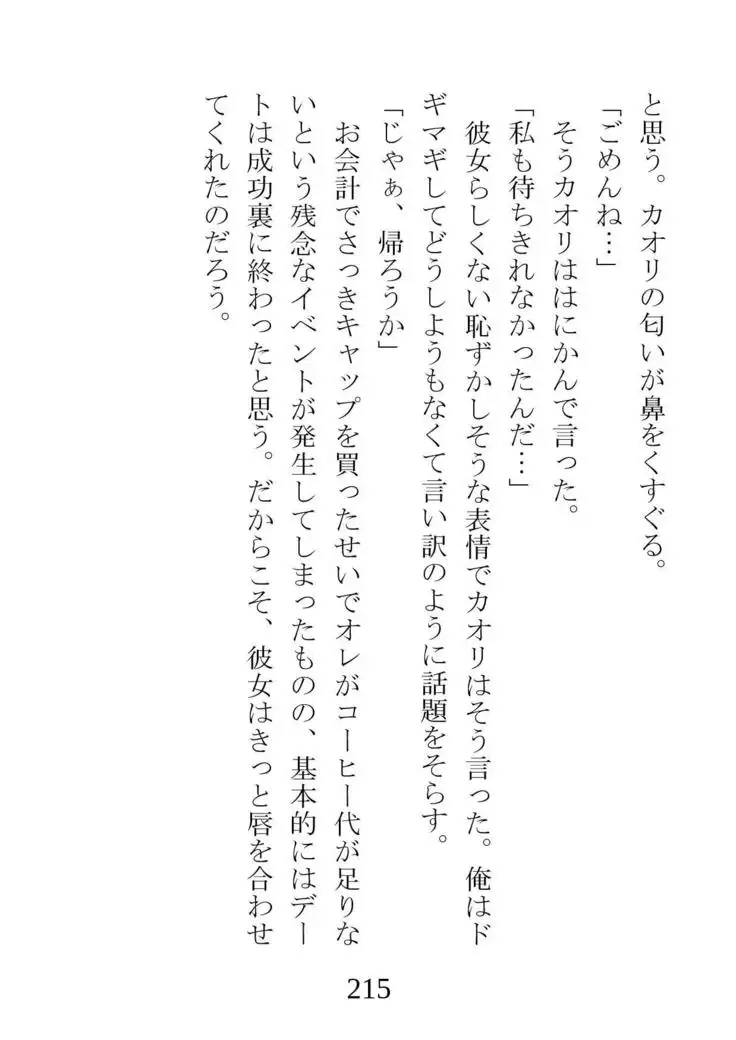 と思う。カオリの匂いが鼻をくすぐる。
「ごめんね…」
そうカオリははにかんで言った。
「私も待ちきれなかったんだ…」
彼女らしくない恥ずかしそうな表情でカオリはそう言った。俺はド
ギマギしてどうしようもなくて言い訳のように話題をそらす。
「じゃぁ、帰ろうか」
お会計でさっきキャップを買ったせいでオレがコーヒー代が足りな
いという残念なイベントが発生してしまったものの、基本的にはデー
トは成功裏に終わったと思う。だからこそ、彼女はきっと唇を合わせ
てくれたのだろう。
215